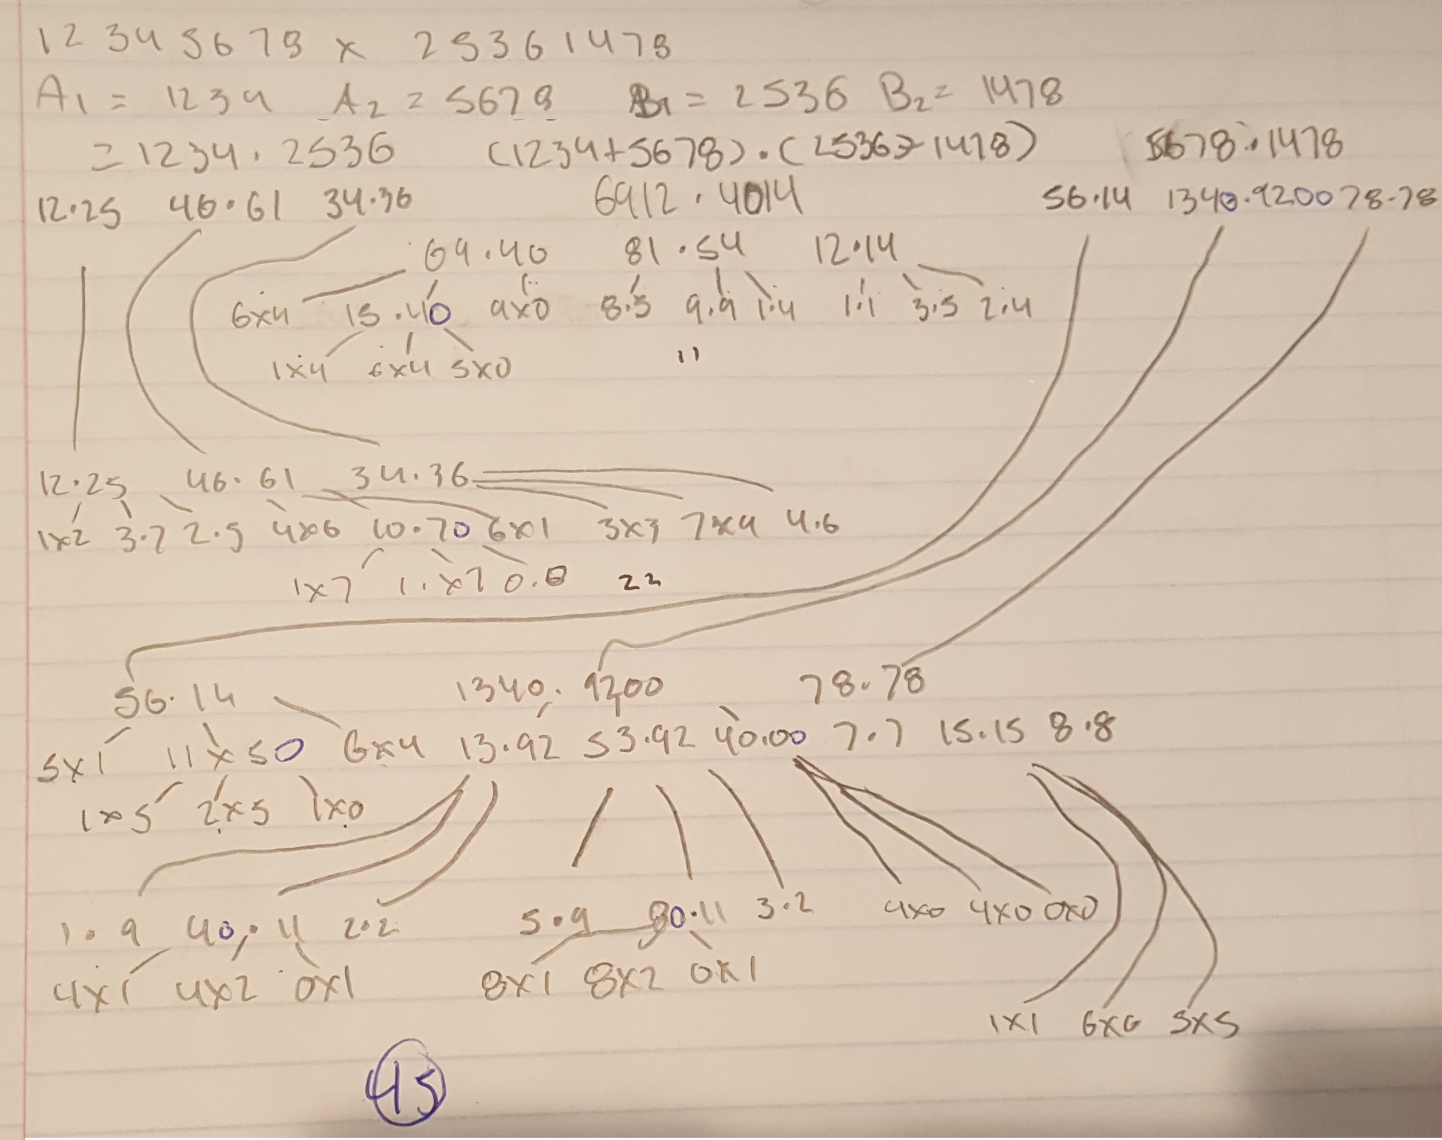 12345678 x 25361478
A1 = 1234 A2 = 5678 B1 = 2536 B2 = 1478
= 1234 . 2536 (1234+5678) . (2536+1478) 5678 . 1478
12.25 46.61 34.36 6912 . 4014 56.14 1340.9200 78.78
69.40 81.54 12.14
6x4 15.40 9x0 8.5 9.9 1.4 1.1 3.5 2.4
1x4 6x4 5x0 11
12.25 46.61 34.36
1x2 3.7 2.5 4x6 10.70 6x1 3x3 7x9 4.6
1x7 1.x7 0.0 22
56.14 1340.9200 78.78
5x1 11x50 6x4 13.92 53.92 40.00 7.7 15.15 8.8
1x5 2x5 1x0
1.9 40.11 2.2 5.9 80.11 3.2 4x0 4x0 0x0
4x1 4x2 0x1 8x1 8x2 0x1
1x1 6x6 5x5
45